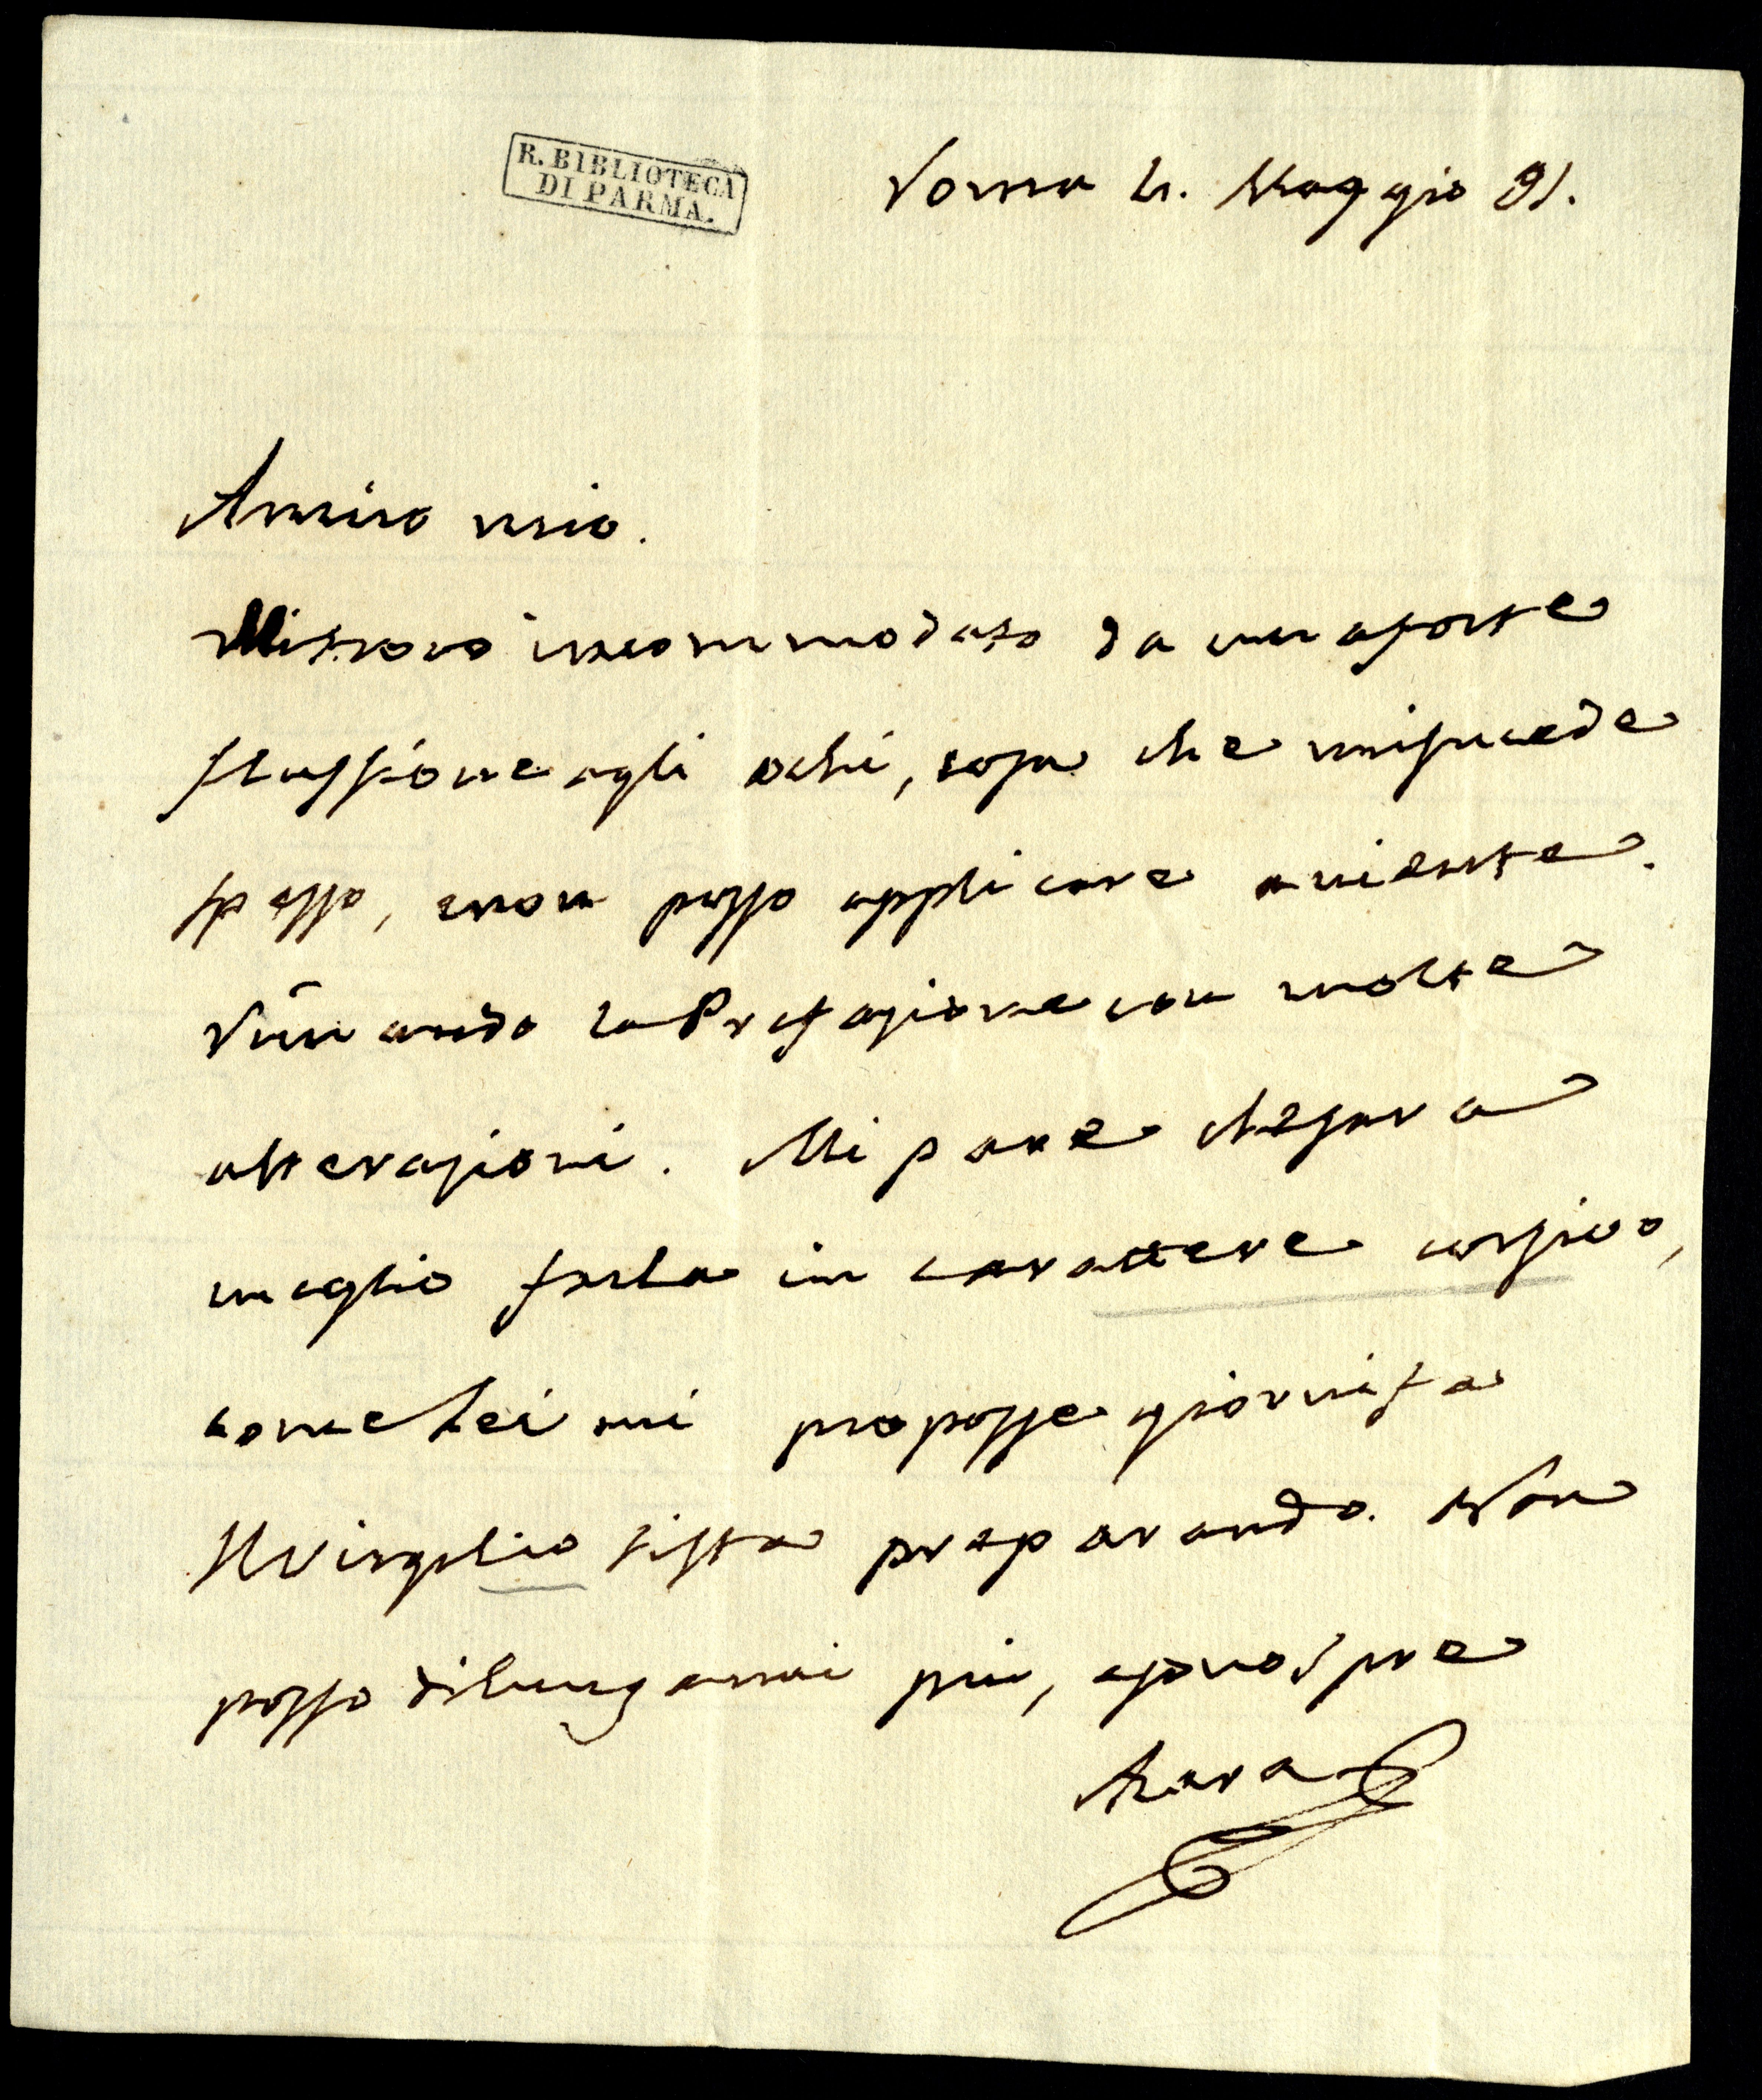 R. BIBLIOTECA
DI PARMA.
Roma 4. Maggio 91.
Amico mio.
Mi trovo incommodato da una forte
flussione agli ochi, cosa che mi sucede
spesso, e non posso applicare a niente.
Rimando la Prefazione con molte
alterazioni. Mi pare che sara
meglio farla in carattere corsivo,
come Lei mi proposse giorni fa
Il Virgilio si sta preparando. Non
posso dilungarmi più, e sono spre
Azara